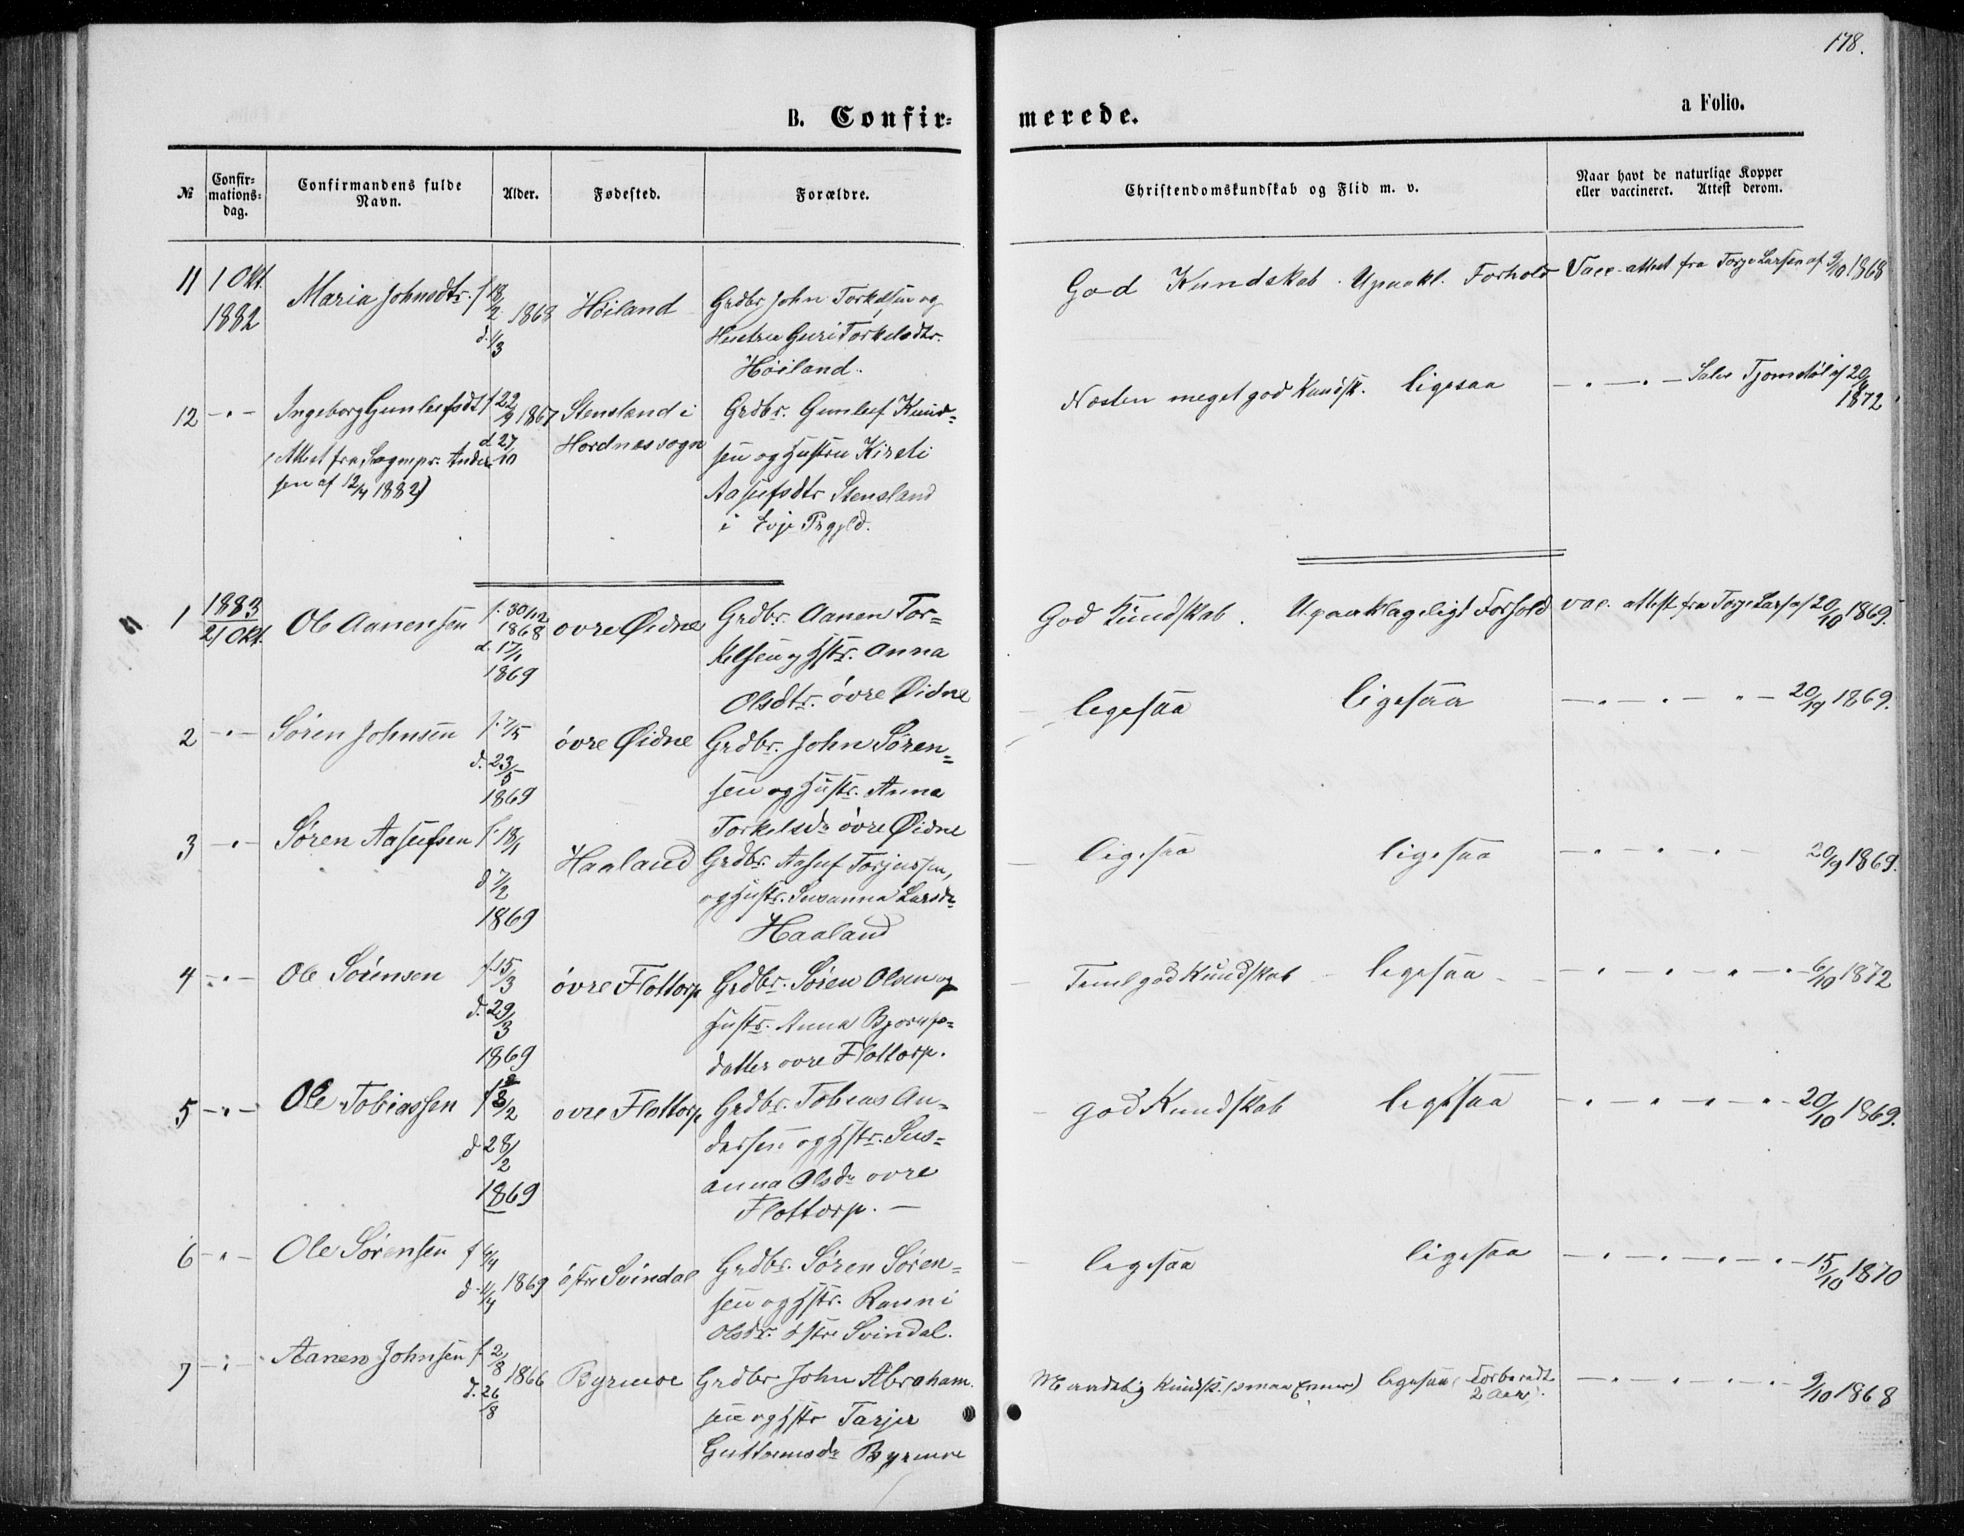 178.
B. Confir-
merede.
a Folio.
№
Confir-
mations-
dag.
Confirmandens fulde
Navn.
Alder.
Fødested.
Forældre.
Christendomskundskab og Flid m. v.
Naar havt de naturlige Kopper
eller vaccineret. Attest derom.
11
1 Okt.
1882
Maria Johnsdtr.
f 18/2
d. 4/3
1868
Høiland
Grdbr. John Torkelsen og
Hustru Guri Torkelsdtr.
Høiland.
God Kundskab. Upaakl. Forhold
Vacc. attest fra Torje Larsen af 9/10 1868
12 -"-
Ingeborg Gunleifsdt
(Attest fra Sognepr. Ander-
sen af 12/4 1882)
f 22/9 1867
d. 27/10
Stensland i
Hordnes sogn
Grdbr. Gunleif Knud-
sen og Hustru Kirsti
Aasufsdtr Stensland
i Evje Prgjld.
Næsten meget god Kundsk. ligesaa
- " - " - Salve Tjomstøl af 20/9
1872
1
1883
21 Okt.
Ole Aanensen
f. 30/12
1868
d. 17/1
1869
ovre Øidne
Grdbr. Aanen Tor-
kelsen og Hstr. Anna
Olsdtr. övre Øidne
God Kundskab. Upaaklageligt Forhold
vac. attest fra Torje Lars af 20/10 1869.
2 -"-
Søren Johnsen
f. 7/5
d. 23/5
1869
övre Øidne
Grdbr. John Søren-
sen og Hustr. Anna
Torkelsdr övre Øidne
ligesaa ligesaa
- " - " - " - 20/9 1869.
3 -"-
Søren Aasufsen
f. 18/1
d 7/2
1869
Haaland
Grdbr. Aasuf Torjussen,
og Hustr. Susanna Larsdr
Haaland
ligesaa ligesaa
- " - " - " - 20/9 1869.
4 -"-
Ole Sörensen
f. 15/3
d. 29/3
1869
övre Flottorp
Grdbr. Søren Olsen og
Hustr. Anna Bjorns-
datter ovre Flottorp.
Teml god Kundskab - ligesaa -
- " - " - " - 6/10 1872
5 -"-
Ole Tobiassen
d 28/2
1869
ovre Flottorp
Grdbr. Tobias An-
dersen og Hstr. Sus-
anna Olsdr ovre
Flottorp. -
god Kundskab ligesaa
- " - " - " - 20/10 1869.
6 -"-
Ole Sørensen
f 4/4
d. 11/4 1869
östre Svindal
Grdbr. Søren Søren-
sen og Hstr. Ranni
Olsdr. östre Svindal.
ligesaa ligesaa
- " - " - " - 15/10 1870
7 -"-
Aanen Johnsen
f. 2/8 1866
d. 26/8
Byrmoe
Grdbr John Abraham-
sen og Hstr Tarjer
Guttormsdr Byrmoe
Maadelig Kundsk. (smaa Evner) ligesaa (Forberedt
2 Aar).
- " - " - " - 9/10 1868